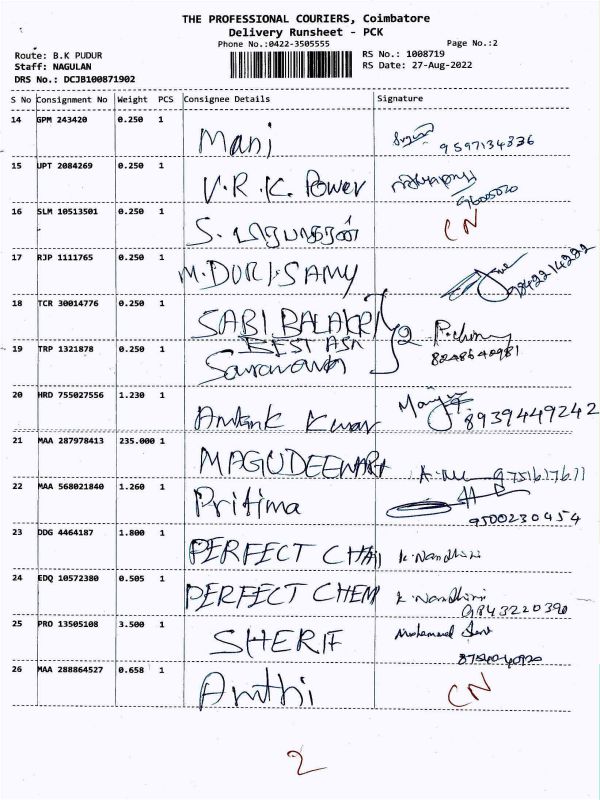 THE PROFESSIONAL COURIERS, Coimbatore
Delivery Runsheet - PCK
Phone No.:0422-3505555
Page No.:2
Route: B.K PUDUR
RS No.: 1008719
Staff: NAGULAN
RS Date: 27-Aug-2022
DRS No.: DCJB100871902
S No Consignment No Weight PCS Consignee Details Signature
14 GPM 243420 0.250 1 Mani 9597134336
15 UPT 2084269 0.250 1 V.R.K. Power
16 SLM 10513501 0.250 1 S. CN
17 RJP 1111765 0.250 1 M.DURI.SAMY 9842214222
18 TCR 30014776 0.250 1 SABI BALAKRI 2
BEST ASN
19 TRP 1321878 0.250 1 Saravanan 8248640981
20 HRD 755027556 1.230 1 Kumar 8939449242
21 MAA 287978413 235.000 1 MAGUDEEWARA
22 MAA 568021840 1.260 1 Pritima 9500230454
23 DDG 4464187 1.800 1 PERFECT CHAI K. Nandhini
24 EDQ 10572380 0.505 1 PERFECT CHEM K. Nandhini
9843220390
25 PRO 13505108 3.500 1 SHERIF Mohamed
26 MAA 288864527 0.658 1 CN
2